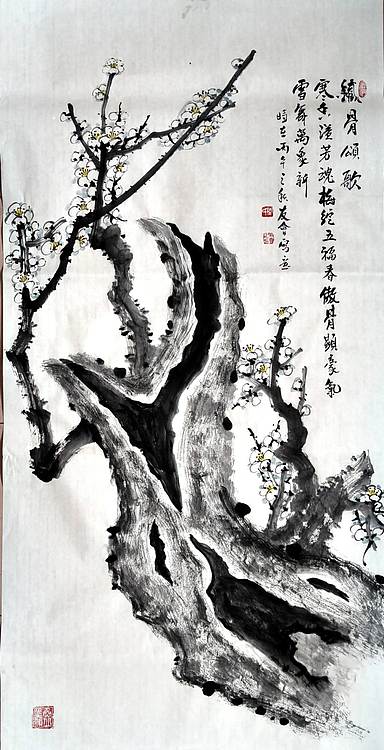 鐵骨頌歌
寒香溢芳魂梅綻五福春傲骨顯豪氣
雪舞萬象新
時在丙午之秋友會寫意